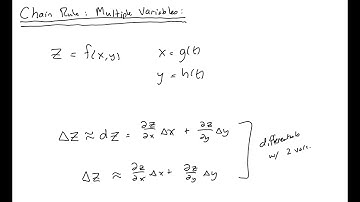 Chain Rule: Multiple Variables:
Z = f(x,y) x = g(t)
y = h(t)
ΔZ ≈ dZ = ∂Z/∂x Δx + ∂Z/∂y Δy
ΔZ ≈ ∂Z/∂x Δx + ∂Z/∂y Δy
differentials
w/ 2 vars.